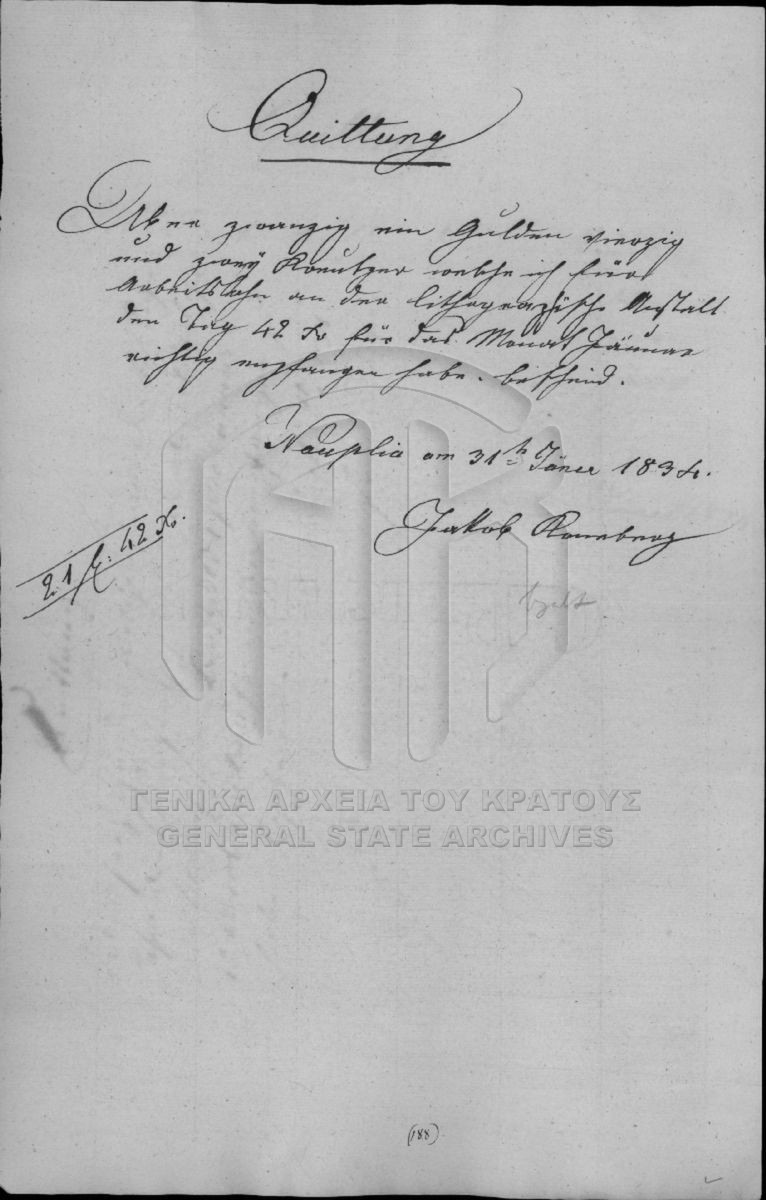 Quittung
Über zwanzig ein Gulden vierzig
und zwey Kreutzer welche ich für
Arbeitslohn an der lithograpische Anstalt
den Tag 42 Xr für das Monat Jäner
richtig empfangen habe.
Nauplia am 31t Jäner 1834.
Jakob
21 f: 42 Xr.
ΓΕΝΙΚΑ ΑΡΧΕΙΑ ΤΟΥ ΚΡΑΤΟΥΣ
GENERAL STATE ARCHIVES
(188)